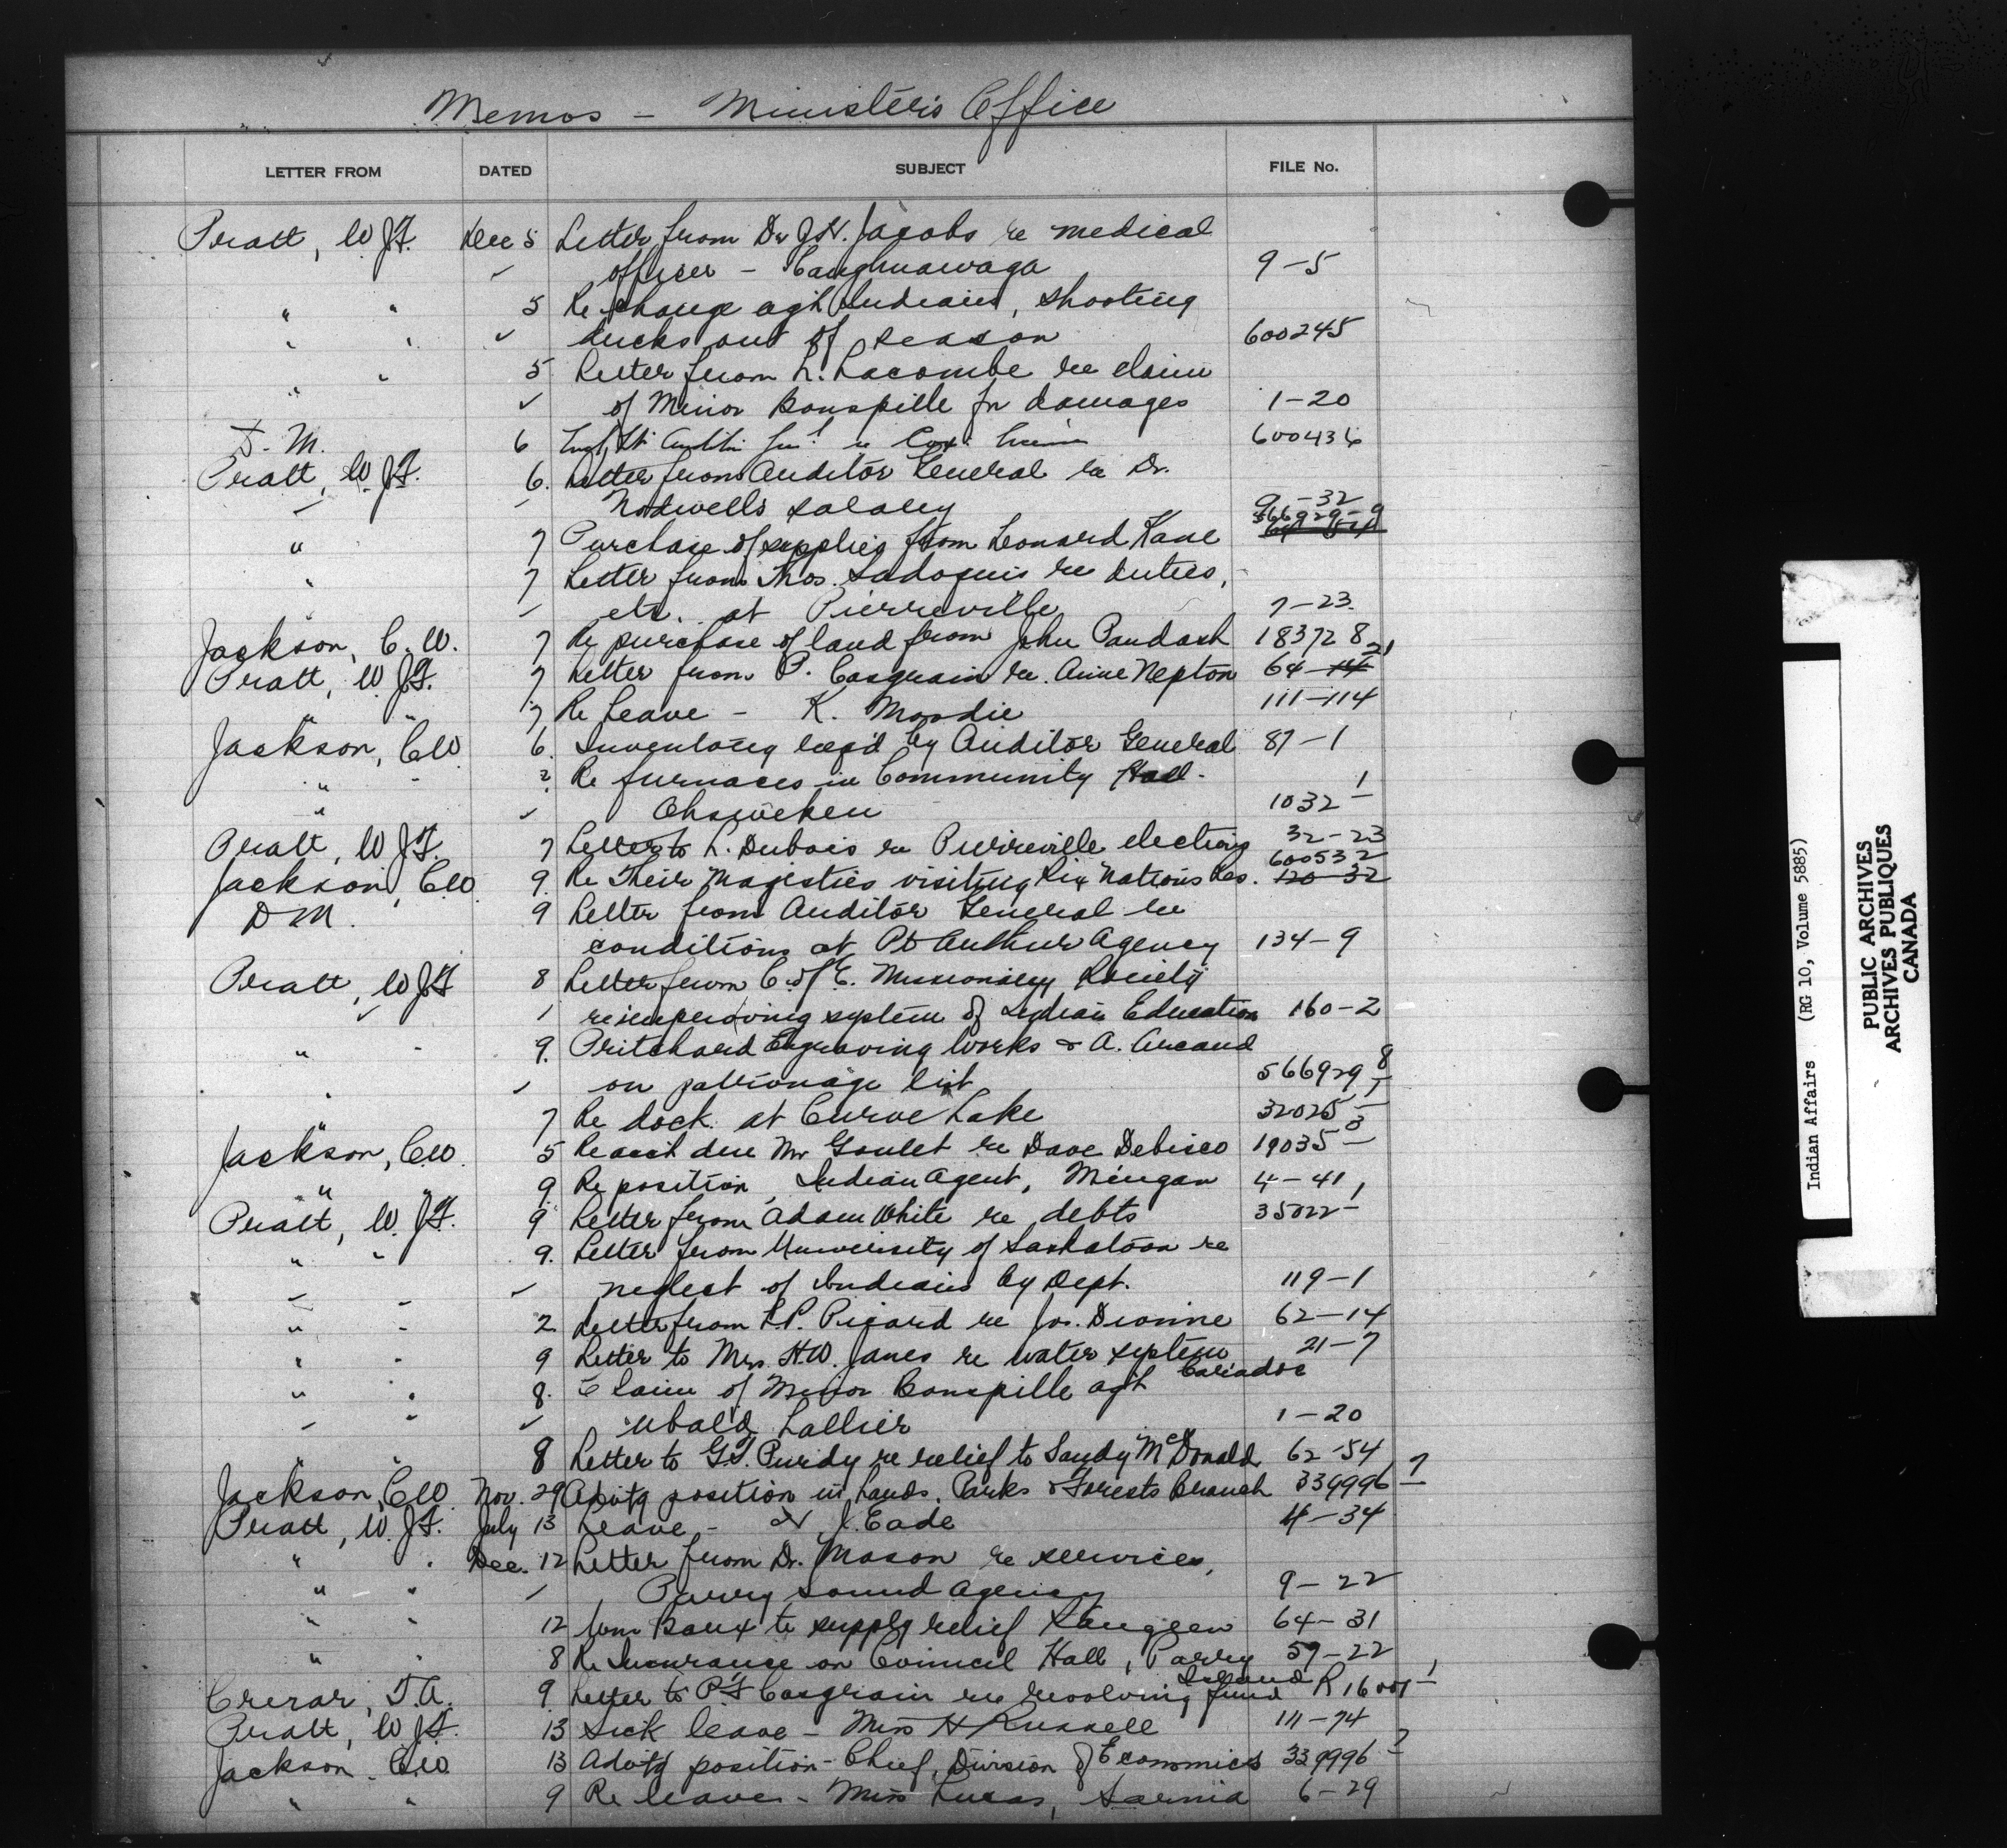 Memos - Minister's Office
LETTER FROM DATED SUBJECT FILE No.
Pratt, W.J.F. Dec 5 Letter from Dr J.H. Jacobs re medical
✓ officer - Caughnawaga 9-5
" " 5 Re charge agst Indians, shooting
" " ✓ ducks out of season 600245
" " 5 Letter from L. Lacombe re claim
" ✓ of Minor Bonspille for damages 1-20
D.M. 6 600436
Pratt, W.J.F. 6. Letter from Auditor General re Dr.
Nodwells salary 9-32
" 7 Purchase of supplies from Leonard Kane 566929-9
" 7 Letter from Thos. Sadoquis re duties,
etc. at Pierreville 7-23.
Jackson, C.W. 7 Re purchase of land from John Paudash 18372 8
Pratt, W.J.F. 7 Letter from P. Casgrain re. Anne Nepton 64-21
" " 7 Re Leave - K. Moodie 111-114
Jackson, C.W. 6. Inventory req'd by Auditor General 87-1
" 2. Re furnaces in Community Hall -
" ✓ Ohsweken 1032-1
Pratt, W.J.F. 7 Letter to L. Dubois re Pierreville elections 32-23
Jackson, C.W. 9. Re Their Majesties visiting Six Nations Res. 600532 120-32
D M. 9 Letter from Auditor General re
conditions at Pt Arthur Agency 134-9
Pratt, W.J.F 8 Letter from C. of E. Missionary Society
re improving system of Indian Education 160-2
" - 9. Pritchard Engraving Works & A. Arcand
" ✓ on patronage list 566929-8
7 Re dock at Curve Lake 32025-1
Jackson, C.W. 5 Re acct due Mr Goulet re Dave Debisco 19035-3
" " 9 Re position, Indian Agent, Mingan 4-41
Pratt, W.J.F. 9 Letter from Adam White re debts 35022-1
" " 9. Letter from University of Saskatoon re
✓ neglect of Indians by Dept. 119-1
" - 2 Letter from L.P. Picard re Jos. Dionne 62-14
" - 9 Letter to Mrs. H.W. Janes re water system 21-7
Caradoc
" " 8. Claim of Minor Bonspille agst
" ✓ Ubald Lallier 1-20
" " 8 Letter to G.T. Purdy re relief to Sandy McDonald 62-54
Jackson, C.W. Nov. 29 Advtg position in Lands, Parks & Forests Branch 339996-7
Pratt, W.J.F. July 13 Leave - J. Eade 4-34
" " Dec. 12 Letter from Dr. Mason re services,
" " Parry Sound Agency 9-22
" " 12 Wm Baux to supply relief Saugeen 64-31
" " 8 Re Insurance on Council Hall, Parry 59-22
Island
Crerar, T.A. 9 Letter to P.F Casgrain re revolving fund R16001-1
Pratt, W.J.F. 13 Sick leave - Miss H Russell 111-74
Jackson, C.W. 13 Advtg position - Chief, Division of Economics 339996-7
" " 9 Re leave - Miss Lucas, Sarnia 6-29
Indian Affairs (RG 10, Volume 5885)
PUBLIC ARCHIVES
ARCHIVES PUBLIQUES
CANADA